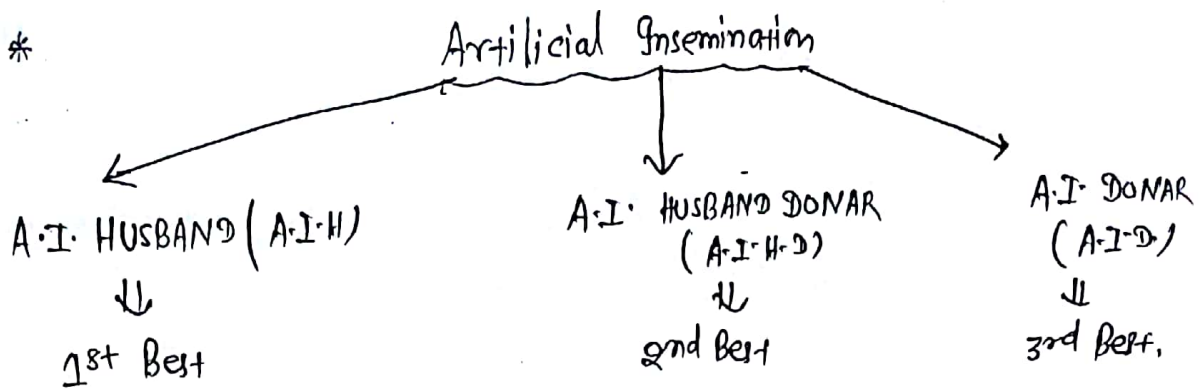 * Artilicial Insemination
A.I. HUSBAND (A.I.H)
1st Best
A.I. HUSBAND DONAR
(A.I.H.D)
2nd Best
A.I. DONAR
(A.I.D.)
3rd Best.